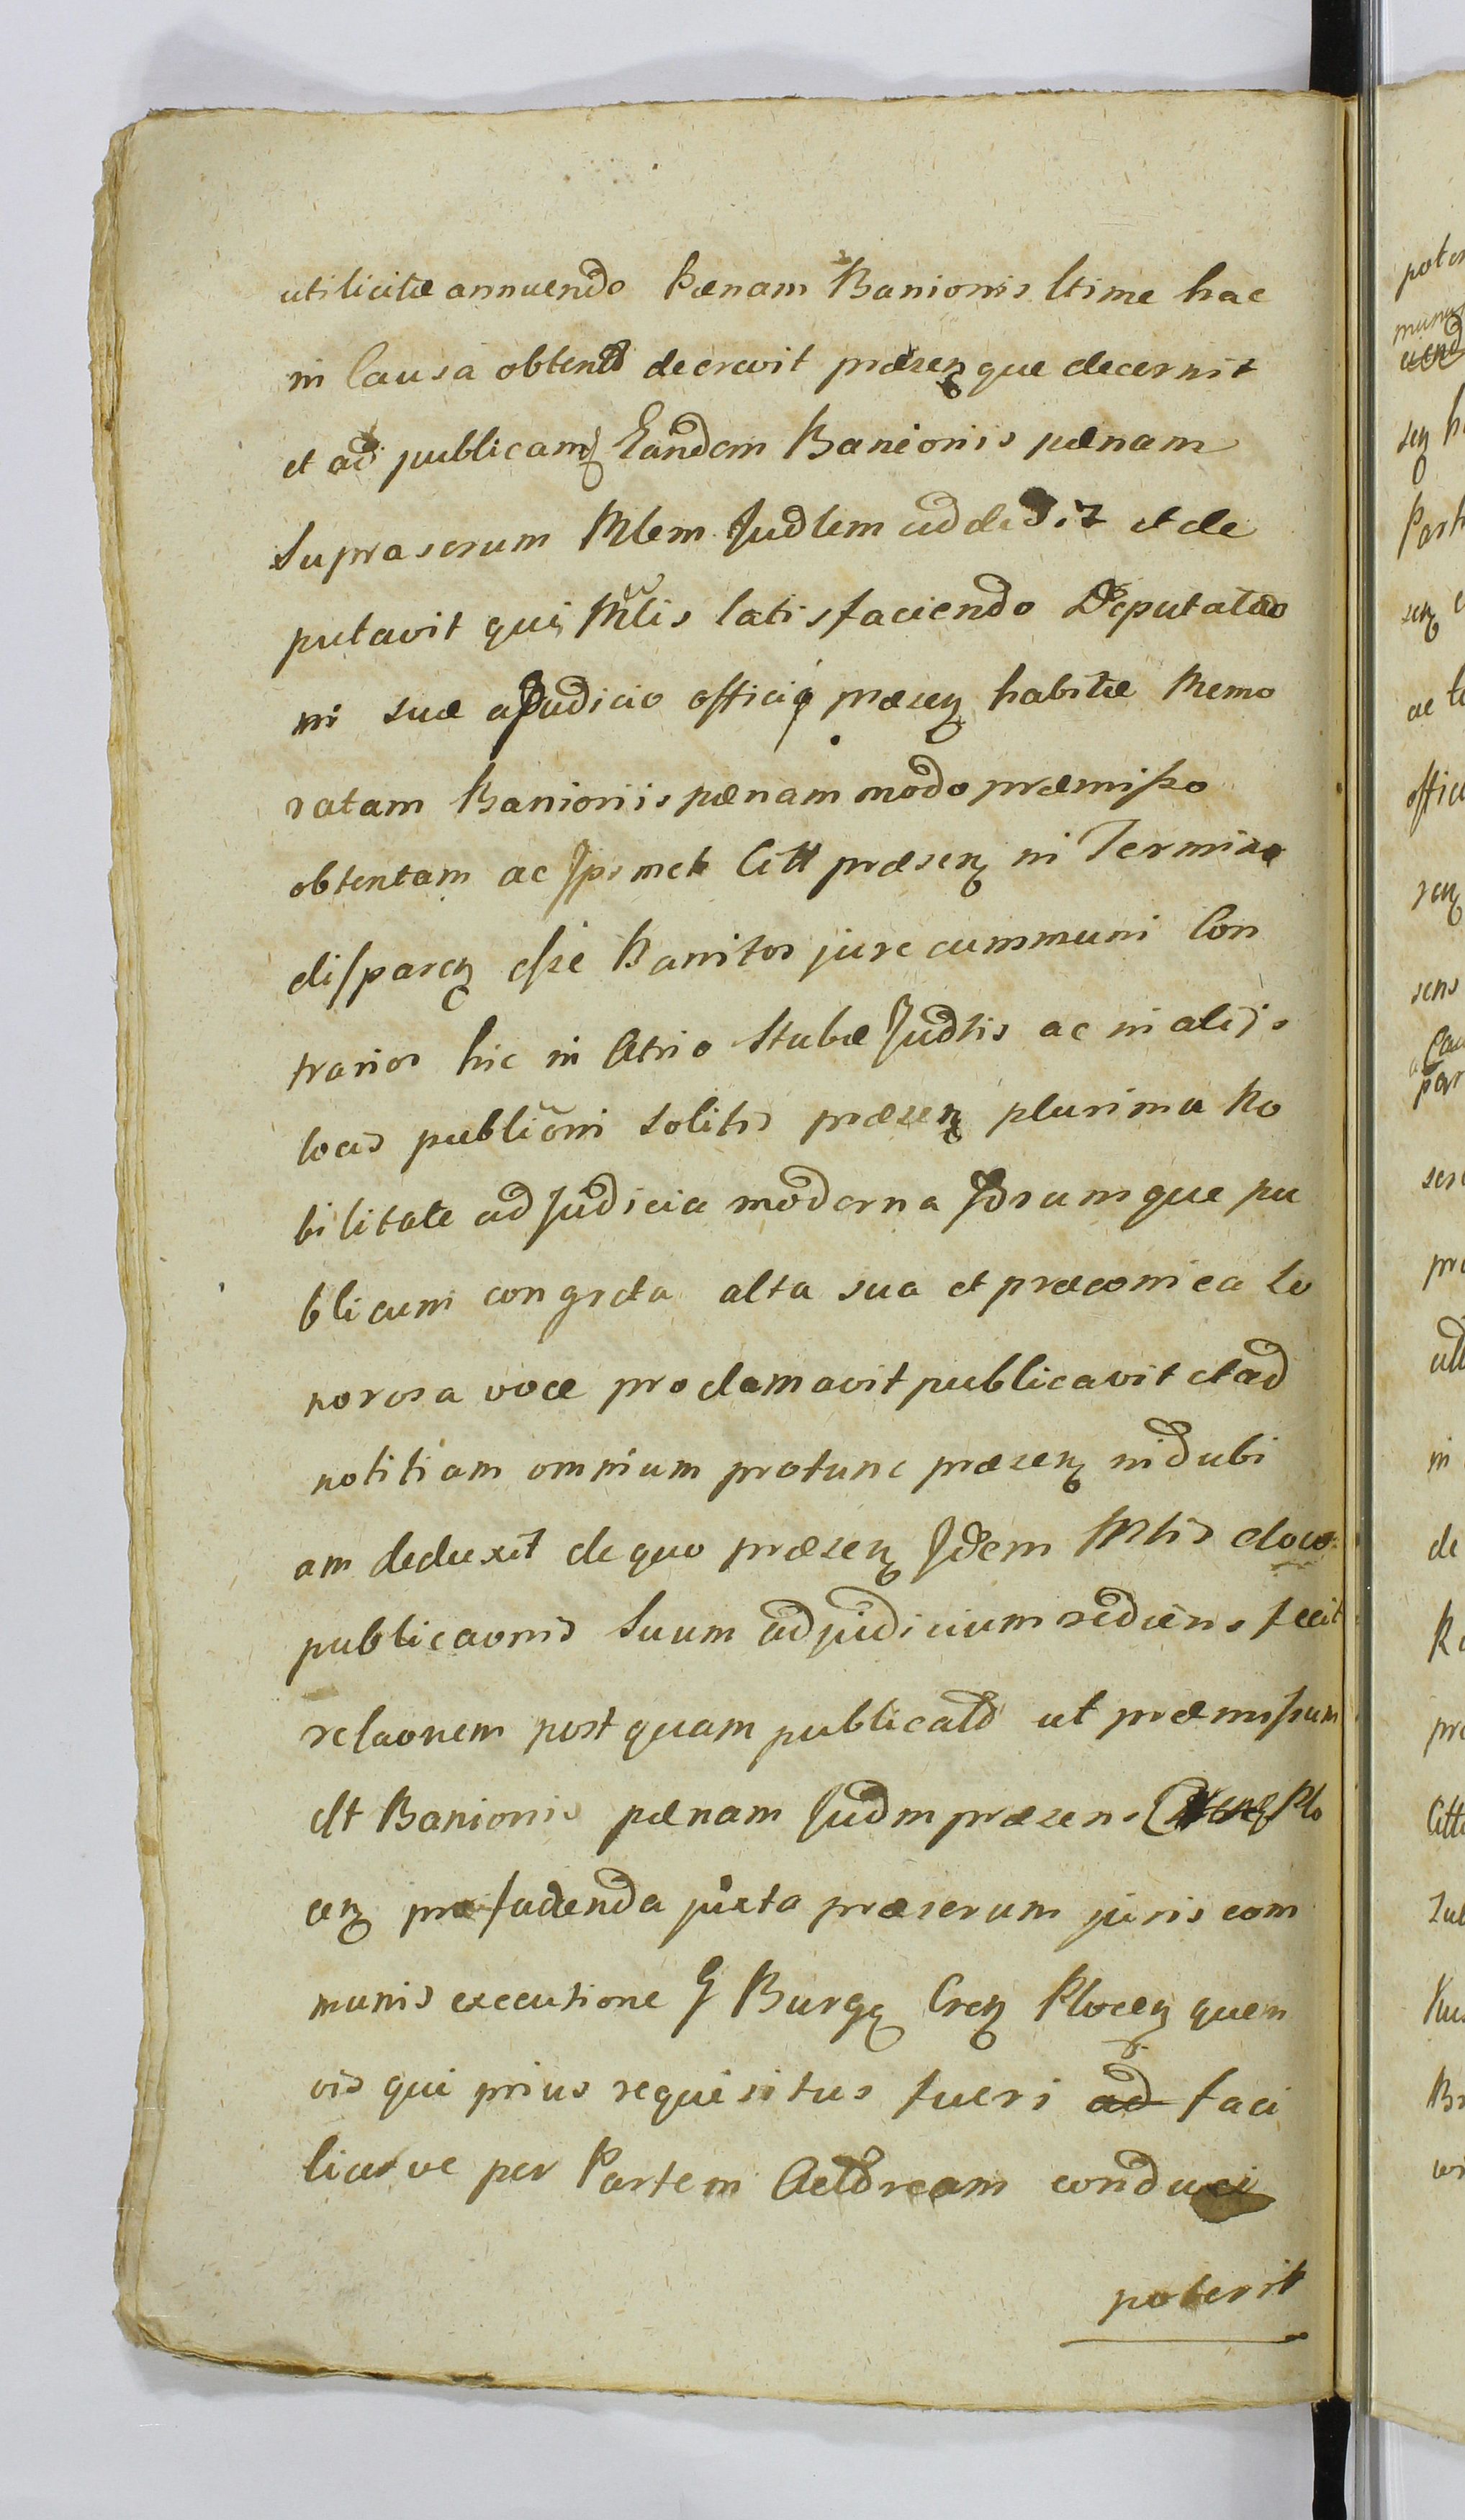 utilicitæ annuendo Pænam Banionis ltime hac
in Causa obtentd decrevit præsenque decernit
et ad publicamd Eandem Banionis pænam
Suprascrum Mlem Judlem addedit et de
putavit qui Mlis satisfaciendo Deputatio
ni suæ a Judicio officiq præsen habitæ Memo
ratam Banionis pænam modo præmisso
obtentam ac Ipsmet Citt præsen in Termino
disparen esse Banitos jure cummuni Con
trarios hic in Atrio Stubæ Judlis ac in alijs
locis publicõni solitis præsen plurima No
bilitate ad Judicia moderna Fdrumque pu
blicum congrcta alta sua et præconica so
norosa voce proclamavit publicavit et ad
notitiam omnium protunc præsen indubi
am deduxit de quo præsen Idem Mlis eloco
publicaonis Suum ad judicium rediens fecit
relaonem post quam publicatd ut præmissum
est Banionis pænam Judm præsens Plo
cen pro facienda juxta præscrum juris com
munis executione G Burgg Cren Plocen quem
vis qui prius requisitus fueri ad faci
liusve per Partem Actdream conduci
poterit